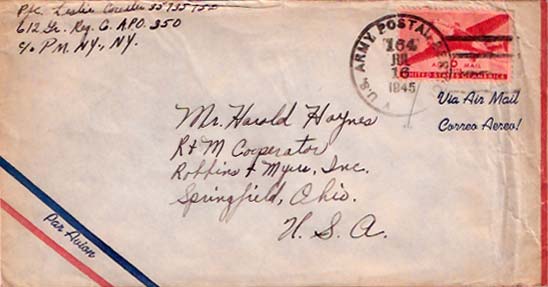 Pfc. Leslie 35735752
612 Gr. Reg. Co. A.P.O. 350
c/o P.M. N.Y., N.Y.
U.S. ARMY POSTAL
164
JUL
16
1945
AIR MAIL
UNITED STATES OF AMERICA
Via Air Mail
Correo Aereo!
Mr. Harold Haynes
R & M Cooperator
Robbins & Myers, Inc.
Springfield, Ohio.
U. S. A.
Par Avion